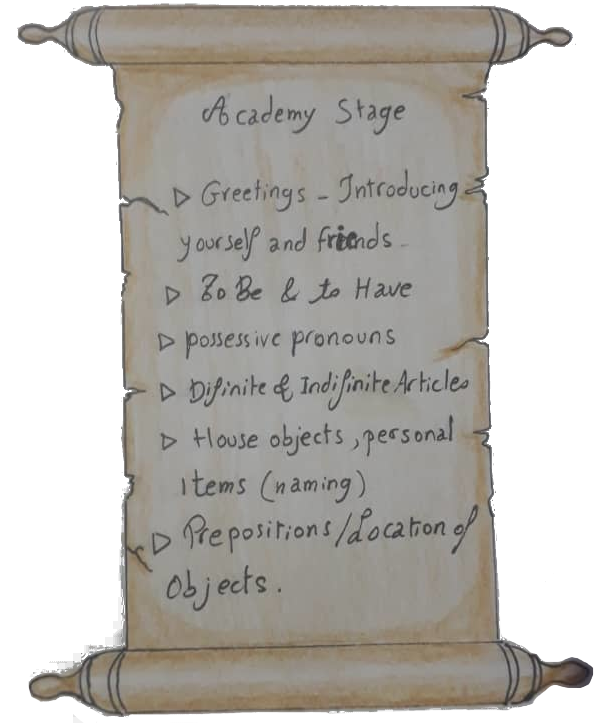 Academy Stage
▷ Greetings - Introducing
yourself and friends -
▷ To Be & to Have
▷ possessive pronouns
▷ Difinite & Indifinite Articles
▷ House objects, personal
items (naming)
▷ Prepositions/Location of
Objects.